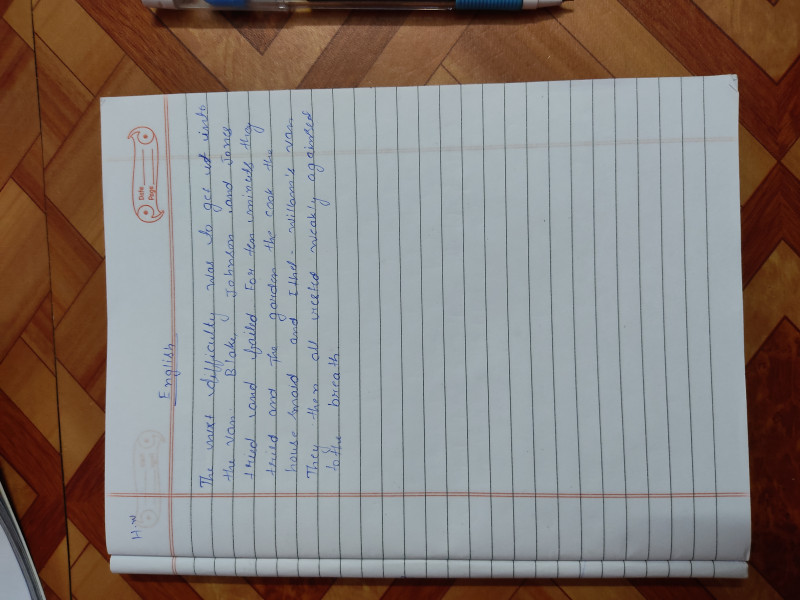 Date
Page
H.W
English
The next difficulty was to get it into
the van. Blake, Johnson and Jones
treed and failed For ten minuets they
treid and The garden the cook the
house maid and Ethel. William's van
They then all rested weakly against
to the breath.